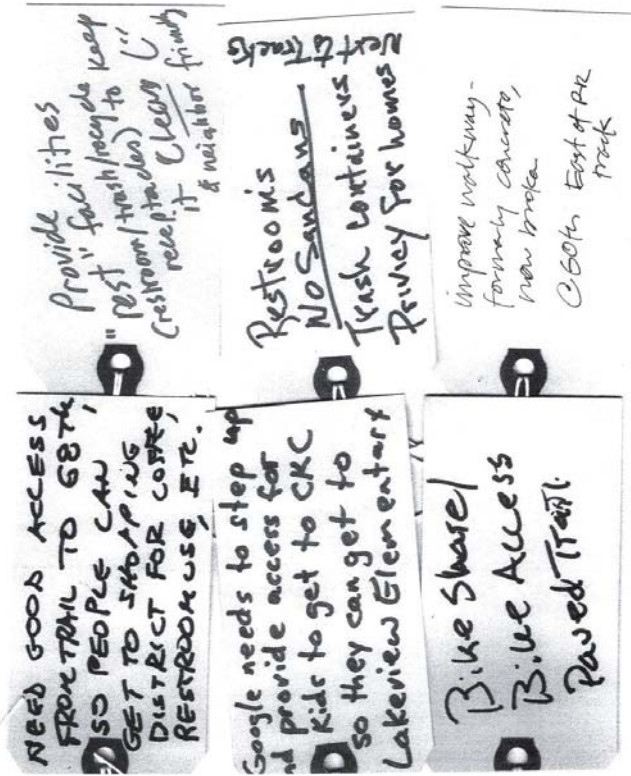 Provide
"rest" facilities
(restroom/trash/recycle
receptacles) to keep
it clean
& neighbor friendly
Restrooms
No Sandcans
Next to Tracks
Trash containers
Privacy For homes
improve walkway -
formerly concrete,
now broken
@60th East of RR
track
NEED GOOD ACCESS
FROM TRAIL TO 68TH,
SO PEOPLE CAN
GET TO SHOPPING
DISTRICT FOR COFFEE,
RESTROOM USE, ETC.
Google needs to step up
nd provide access for
Kids to get to CKC
so they can get to
Lakeview Elementary
Bike Share/
Bike Access
Paved Trail.